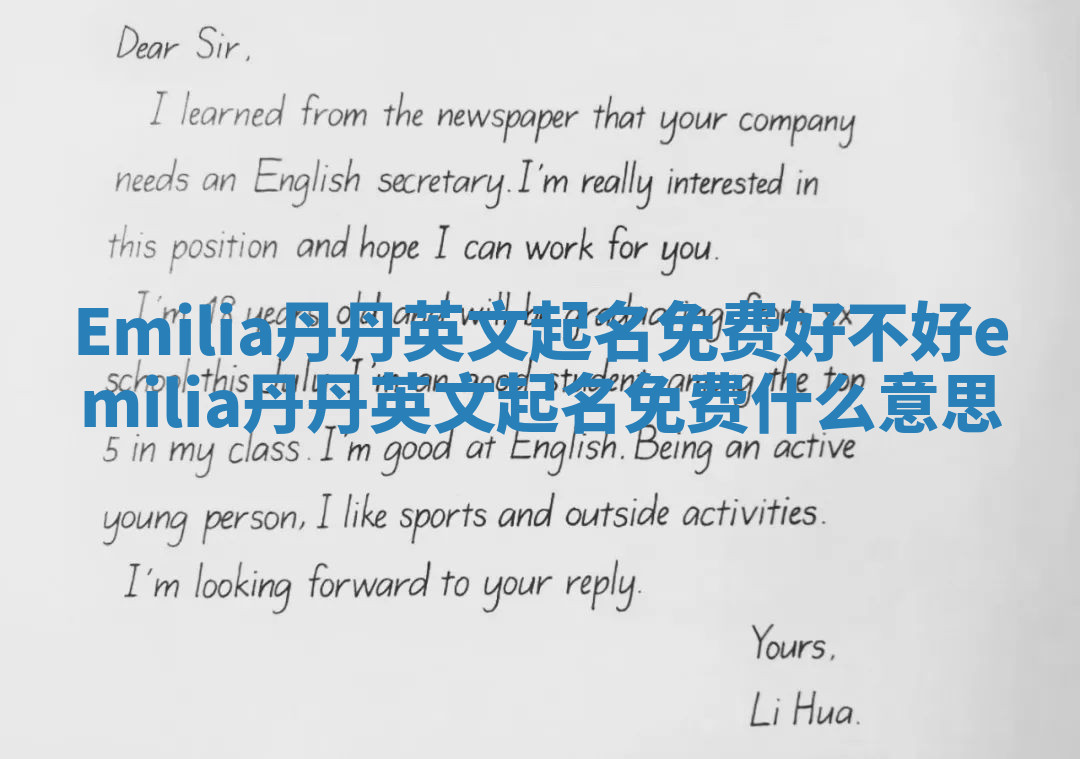 Dear Sir,
I learned from the newspaper that your company
needs an English secretary. I'm really interested in
this position and hope I can work for you.
I'm 18 years old and will be graduating from xx
Emilia丹丹英文起名免费好不好e
school this July. I'm an good student among the top
milia丹丹英文起名免费什么意思
5 in my class. I'm good at English. Being an active
young person, I like sports and outside activities.
I'm looking forward to your reply.
Yours,
Li Hua.